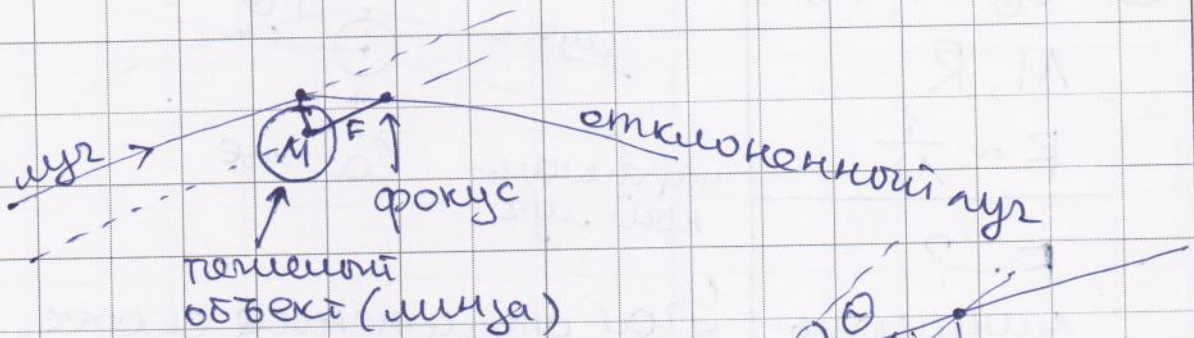 луч
M
F
фокус
отклоненный луч
тяжелый
объект (линза)
θ